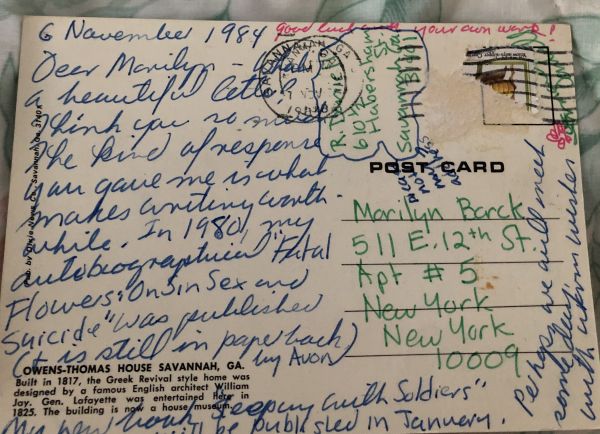 6 November 1984
good luck with your own work!
Dear Marilyn - What
a beautiful letter.
Thank you so much.
The kind of response
you gave me is what
makes writing worth-
while. In 1980, my
autobiographical "Fatal
Flowers: On Sin Sex and
Suicide" was published
(it is still in paperback)
by Avon
My new book Sleeping with Soldiers"
will be published in January.
Perhaps we will meet
someday.
with warm wishes
R.
6104
Habersham
St.
Savannah
SAVANNAH, GA
POST CARD
Marilyn Barck
511 E. 12th St.
Apt # 5
New York
New York
10009
OWENS-THOMAS HOUSE SAVANNAH, GA.
Built in 1817, the Greek Revival style home was
designed by a famous English architect William
Jay. Gen. Lafayette was entertained Here in
1825. The building is now a house museum.
Savannah, Ga.